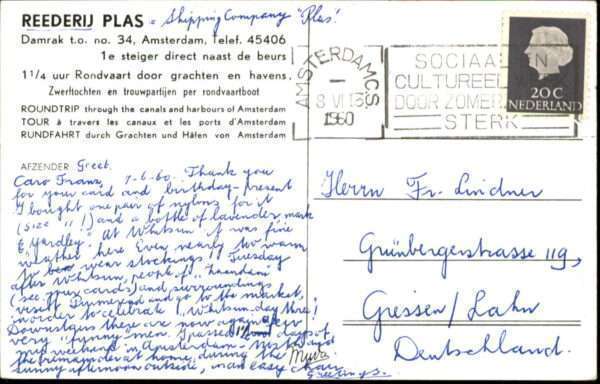 REEDERIJ PLAS = Shipping Company "Plas!
Damrak t.o. no. 34, Amsterdam, Telef. 45406
1e steiger direct naast de beurs
1¼ uur Rondvaart door grachten en havens.
Zwerftochten en trouwpartijen per rondvaartboot
ROUNDTRIP through the canals and harbours of Amsterdam
TOUR à travers les canaux et les ports d'Amsterdam
RUNDFAHRT durch Grachten und Häfen von Amsterdam
AMSTERDAM C.S.
8 VI 15
1960
SOCIAAL
CULTUREEL
DOOR ZOMER
STERK
20C
NEDERLAND
AFZENDER Greet.
Caro Franz, 7-6-60. Thank you
for your card and birthday-present
I bought one pair of nylons for it
(size 11) and a bottle of lavender mark
"Yardley." At Whitsun it was fine
weather here. Even nearly too warm
to wear stockings!! Tuesday
after Whitsun, people of "Zaandam"
(see your cards) and surroundings
visit Purmerend and go to the market,
in order to celebrate Whitsunday there!
Downstairs there are now again
very "funny men" I passed days of
my weekend in Amsterdam
the remainder at home, during the
sunny afternoon outside, in an easy chair
Greetings.
Herrn Fr. Lindner
Grünbergerstrasse 119,
Giessen/Lahn
Deutschland.